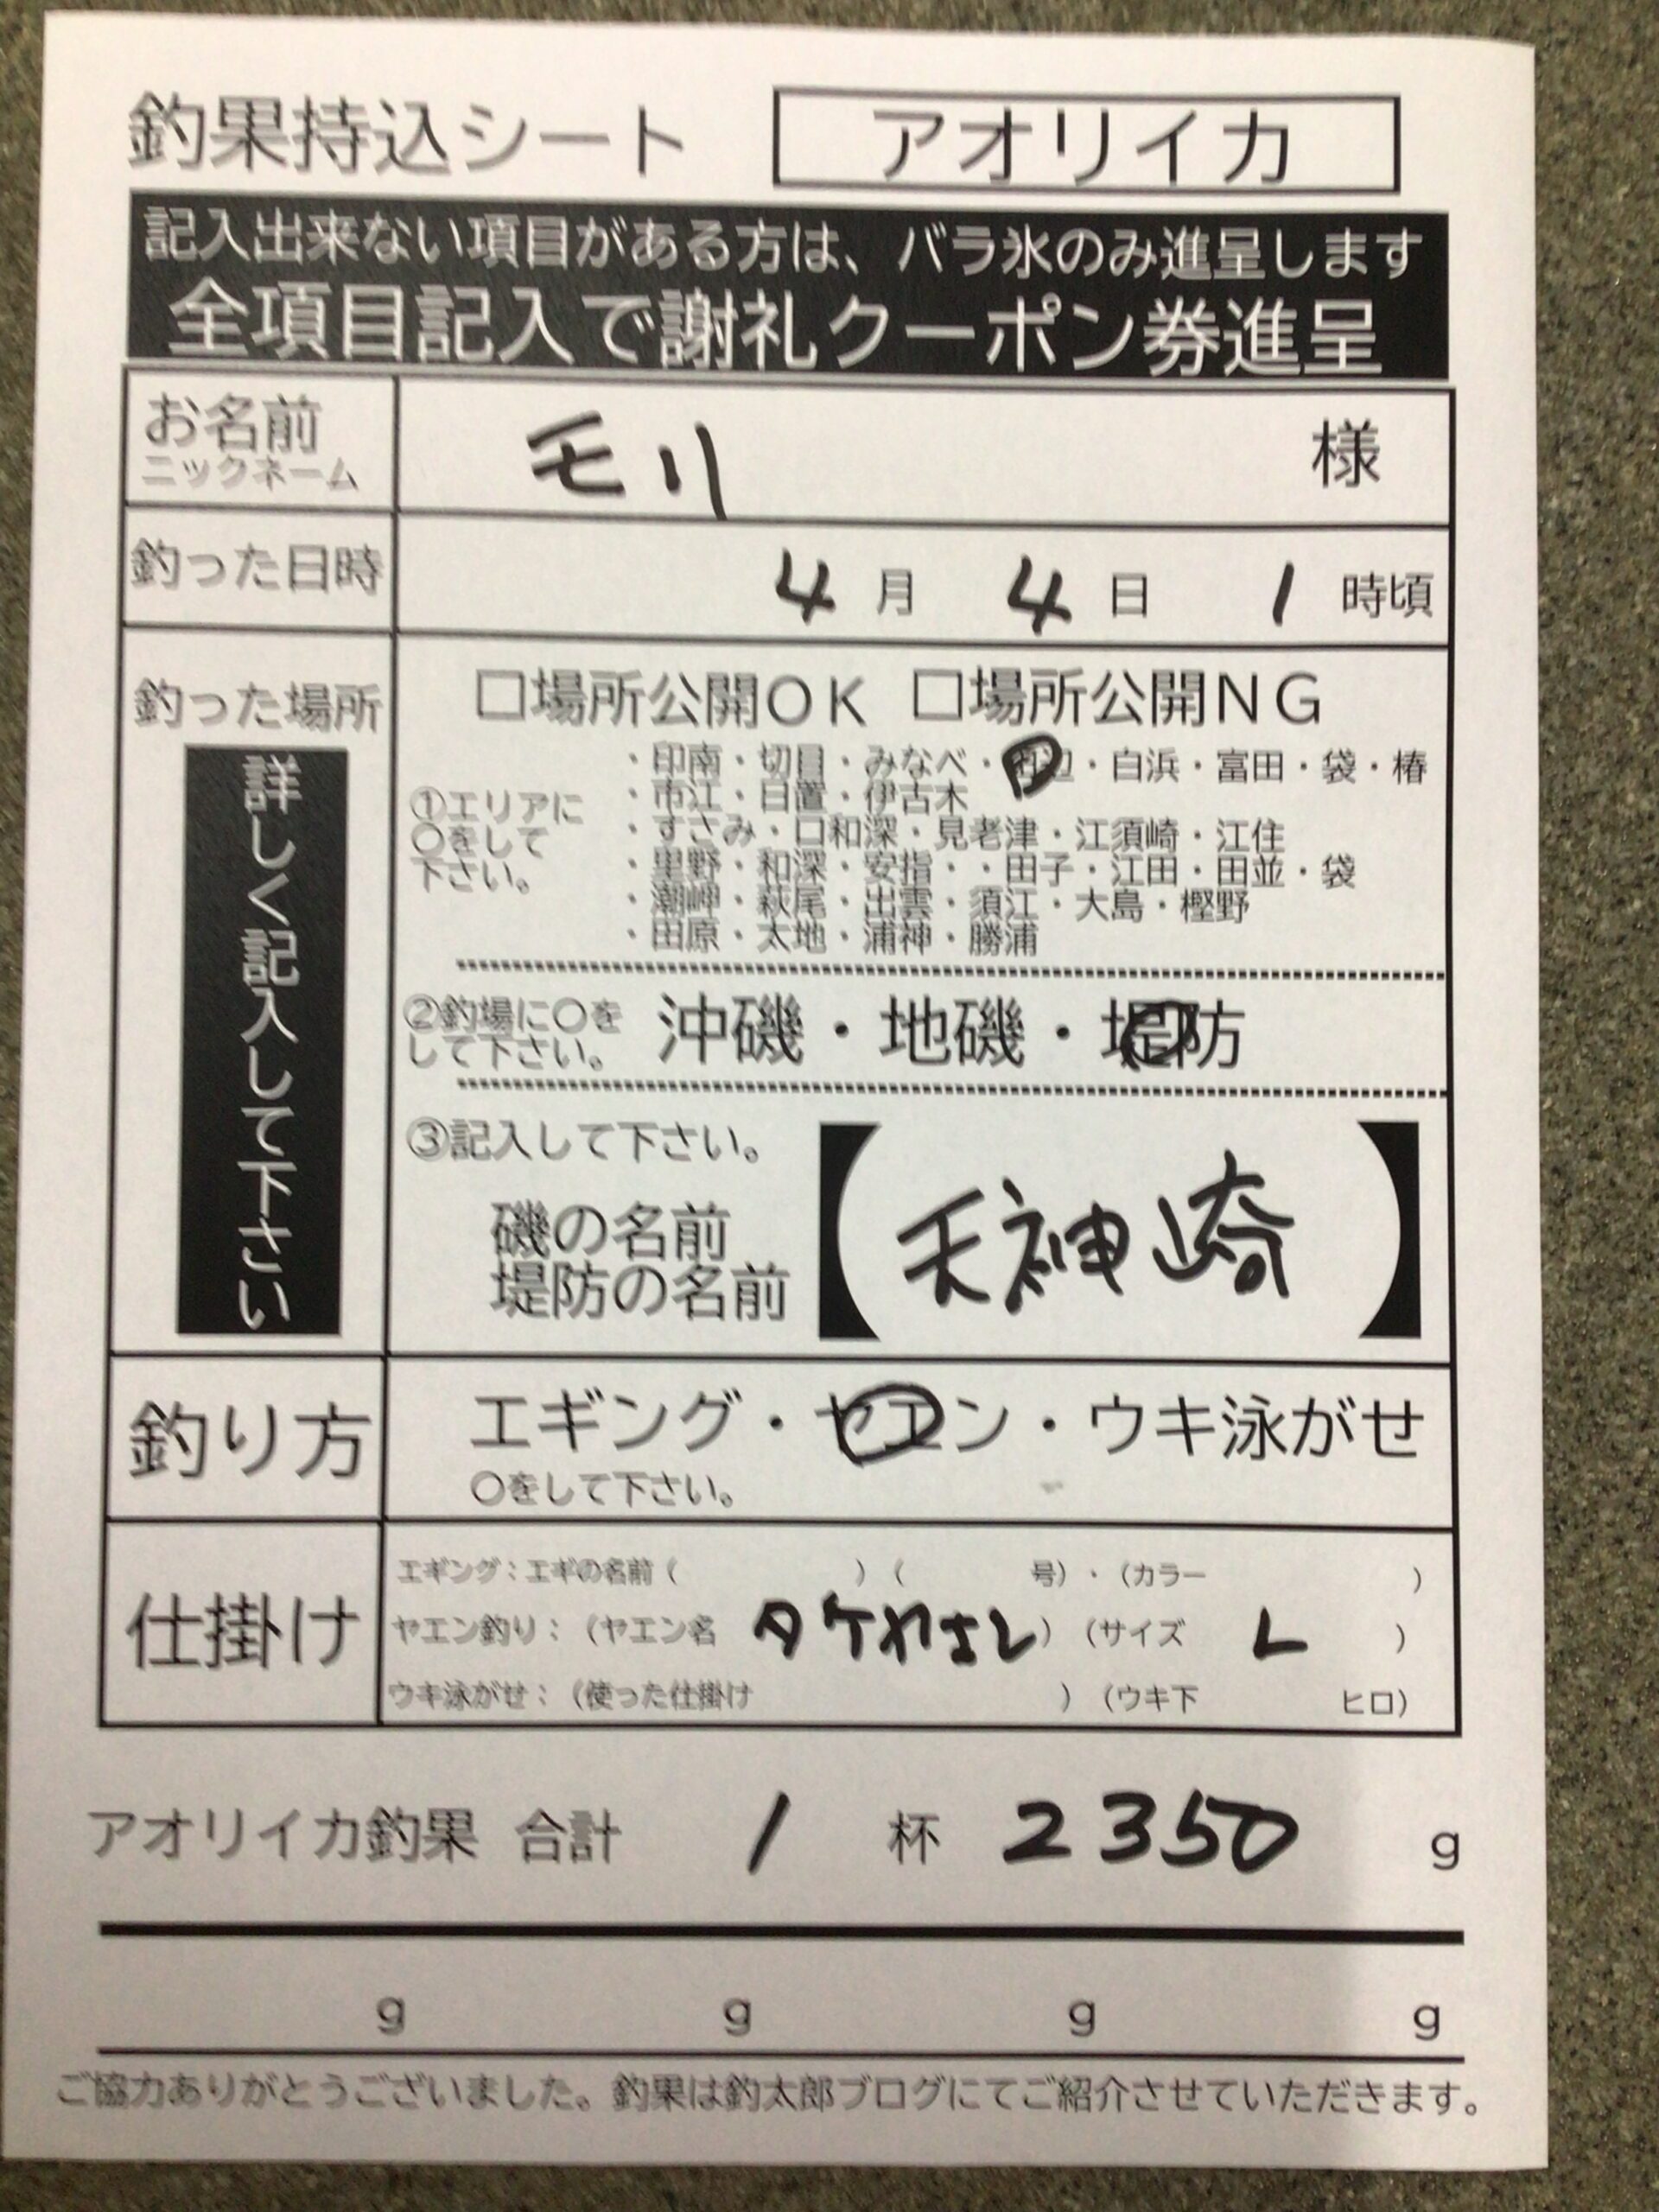 釣果持込シート アオリイカ
記入出来ない項目がある方は、バラ氷のみ進呈します
全項目記入で謝礼クーポン券進呈
お名前 毛リ 様
ニックネーム
釣った日時 4月 4日 1時頃
釣った場所 □場所公開OK □場所公開NG
詳しく記入して下さい
①エリアに〇をして下さい。
・印南・切目・みなべ・田辺・白浜・富田・袋・椿
・市江・日置・伊古木
・すさみ・口和深・見老津・江須崎・江住
・里野・和深・安指・・田子・江田・田並・袋
・潮岬・萩尾・出雲・須江・大島・樫野
・田原・太地・浦神・勝浦
②釣場に〇をして下さい。 沖磯・地磯・堤防
③記入して下さい。
磯の名前
堤防の名前 【天神崎】
釣り方 エギング・ヤエン・ウキ泳がせ
〇をして下さい。
仕掛け エギング:エギの名前( )( 号)・(カラー )
ヤエン釣り:(ヤエン名 タケヤエン)(サイズ L )
ウキ泳がせ:(使った仕掛け )(ウキ下 ヒロ)
アオリイカ釣果 合計 1 杯 2350 g
g g g g
ご協力ありがとうございました。釣果は釣太郎ブログにてご紹介させていただきます。